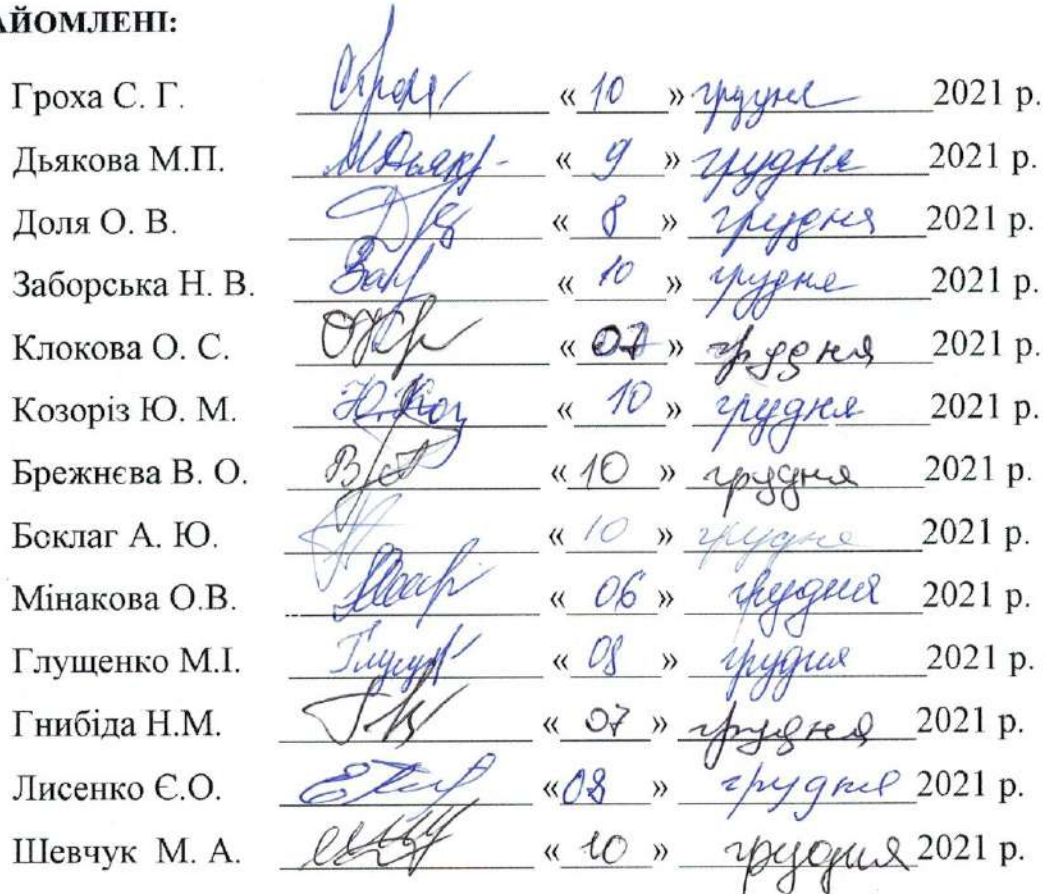 АЙОМЛЕНІ:
Гроха С. Г. « 10 » грудня 2021 р.
Дьякова М.П. « 9 » грудня 2021 р.
Доля О. В. « 8 » грудня 2021 р.
Заборська Н. В. « 10 » грудня 2021 р.
Клокова О. С. « 07 » грудня 2021 р.
Козоріз Ю. М. « 10 » грудня 2021 р.
Брежнєва В. О. « 10 » грудня 2021 р.
Боклаг А. Ю. « 10 » грудня 2021 р.
Мінакова О.В. « 06 » грудня 2021 р.
Глущенко М.І. « 08 » грудня 2021 р.
Гнибіда Н.М. « 07 » грудня 2021 р.
Лисенко Є.О. «08 » грудня 2021 р.
Шевчук М. А. « 10 » грудня 2021 р.